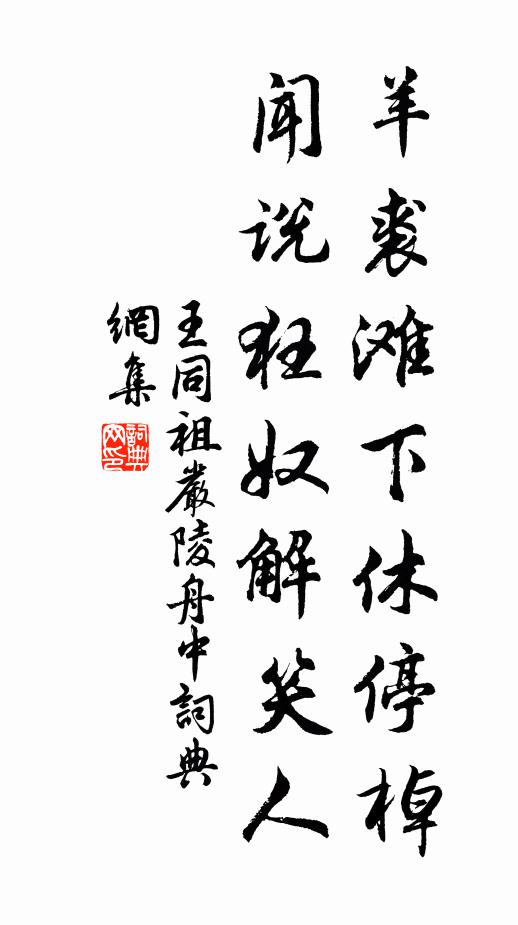 羊裘滩下休停棹
闻说狂奴解笑人
王同祖嚴陵舟中詞典
網集
詞典
网印